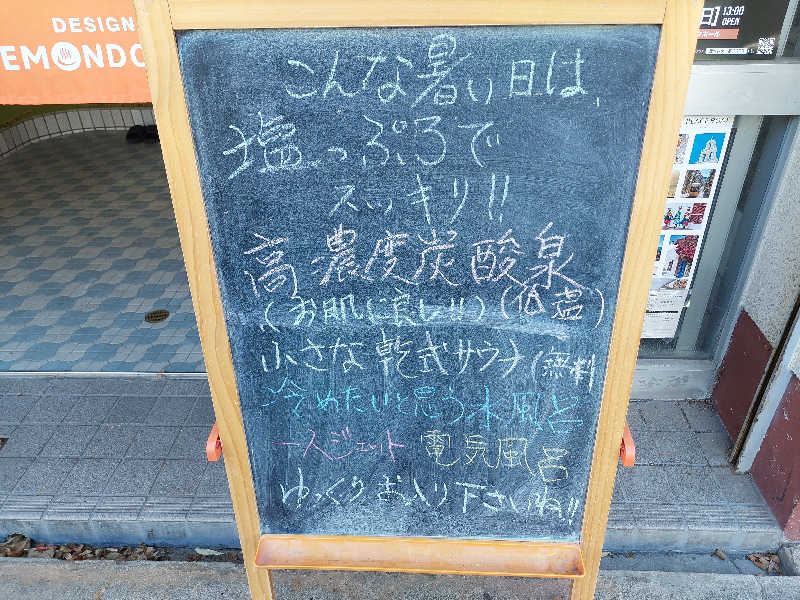 DESIGN
EMONDO
13:00
OPEN
こんな暑い日は、
塩っぷろで
スッキリ!!
高濃度炭酸泉
(お肌に良し!!)(低温)
小さな乾式サウナ(無料
冷めたいと思う水風呂
一人ジェット 電気風呂
ゆっくりお入り下さいね!!